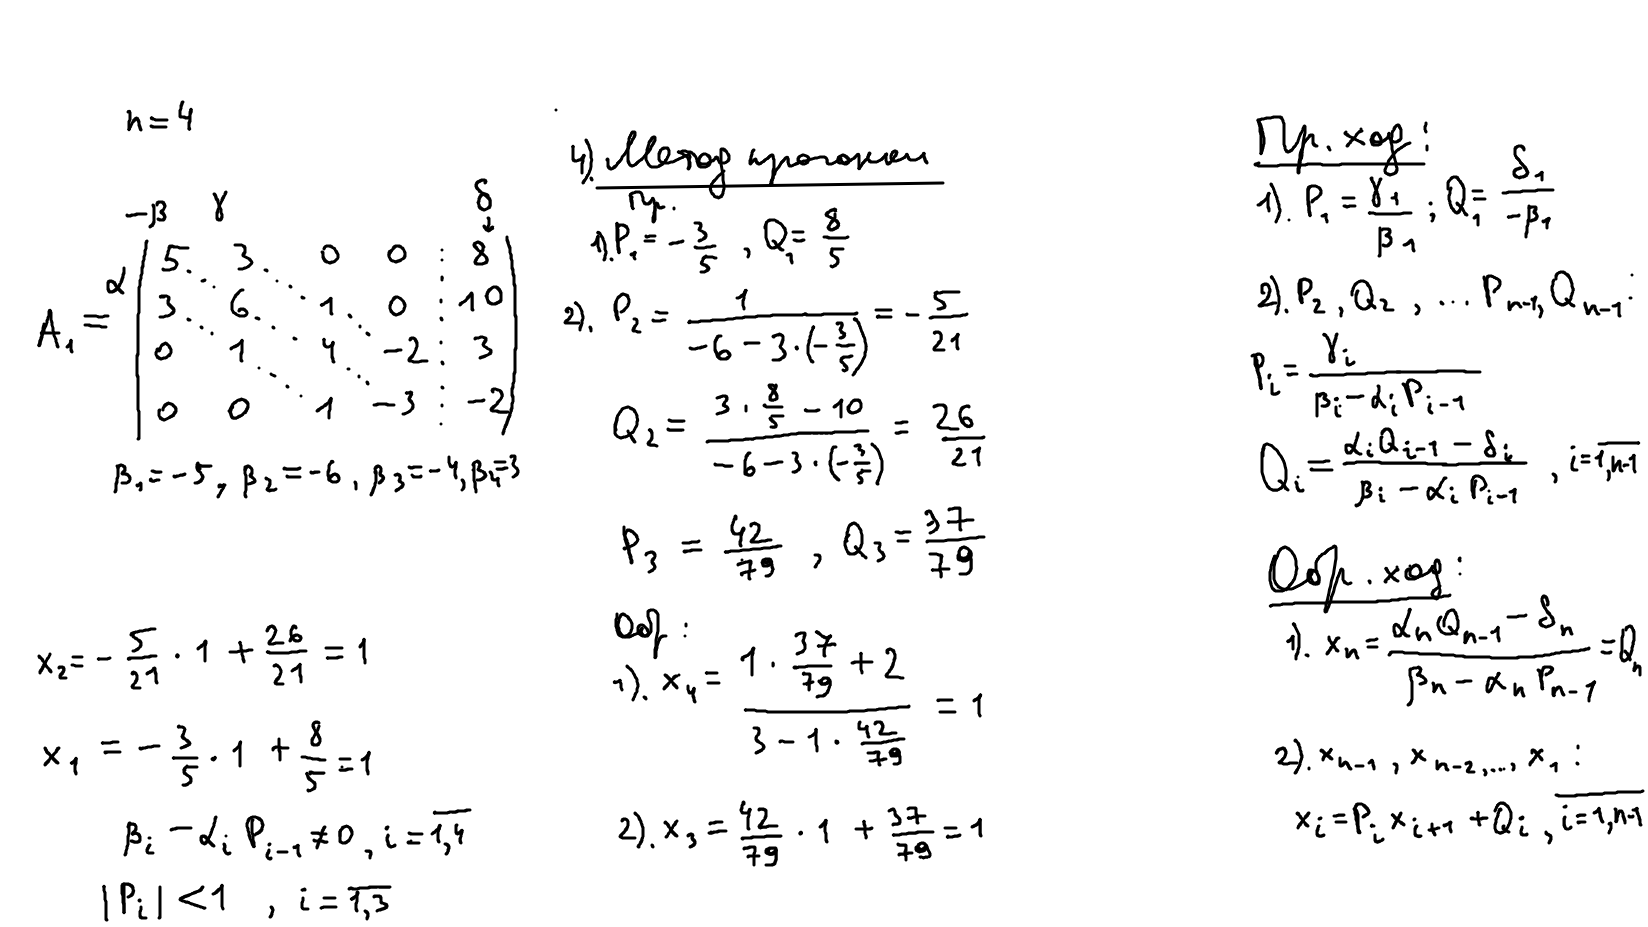 n = 4
-β γ δ
α
A₁ =
5 3 0 0 ⋮ 8
3 6 1 0 ⋮ 10
0 1 4 -2 ⋮ 3
0 0 1 -3 ⋮ -2
β₁ = -5, β₂ = -6, β₃ = -4, β₄ = 3
x₂ = - 5/21 · 1 + 26/21 = 1
x₁ = - 3/5 · 1 + 8/5 = 1
βᵢ - αᵢ Pᵢ₋₁ ≠ 0, i = \overline{1,4}
|Pᵢ| < 1 , i = \overline{1,3}
4). Метод прогонки
Пр.
1). P₁ = - 3/5 , Q₁ = 8/5
2). P₂ = 1/(-6 - 3·(-3/5)) = - 5/21
Q₂ = (3 · 8/5 - 10)/(-6 - 3·(-3/5)) = 26/21
P₃ = 42/79 , Q₃ = 37/79
Обр :
1). x₄ = (1 · 37/79 + 2)/(3 - 1 · 42/79) = 1
2). x₃ = 42/79 · 1 + 37/79 = 1
Пр. ход :
1). P₁ = γ₁/β₁ ; Q₁ = δ₁/-β₁
2). P₂, Q₂, ... Pₙ₋₁, Qₙ₋₁ :
Pᵢ = γᵢ/(βᵢ - αᵢ Pᵢ₋₁)
Qᵢ = (αᵢ Qᵢ₋₁ - δᵢ)/(βᵢ - αᵢ Pᵢ₋₁) , i = \overline{1,n-1}
Обр. ход :
1). xₙ = (αₙ Qₙ₋₁ - δₙ)/(βₙ - αₙ Pₙ₋₁) = Qₙ
2). xₙ₋₁, xₙ₋₂, ..., x₁ :
xᵢ = Pᵢ xᵢ₊₁ + Qᵢ , \overline{i = 1,n-1}